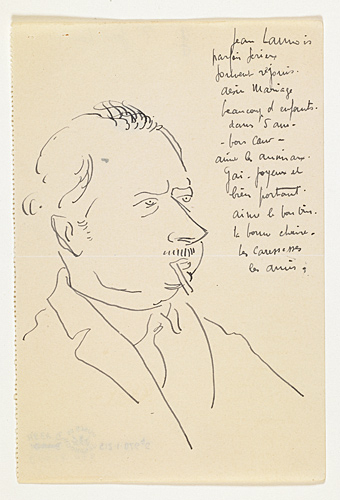 Jean Launois
parfois sérieux
souvent réjouis.
désir Mariage
beaucoup d'enfants.
dans 5 ans.
- bon cœur -
aime les animaux.
Gai. Joyeux et
bien portant.
aime le bon vin.
la bonne chaire.
les caresses
les amis